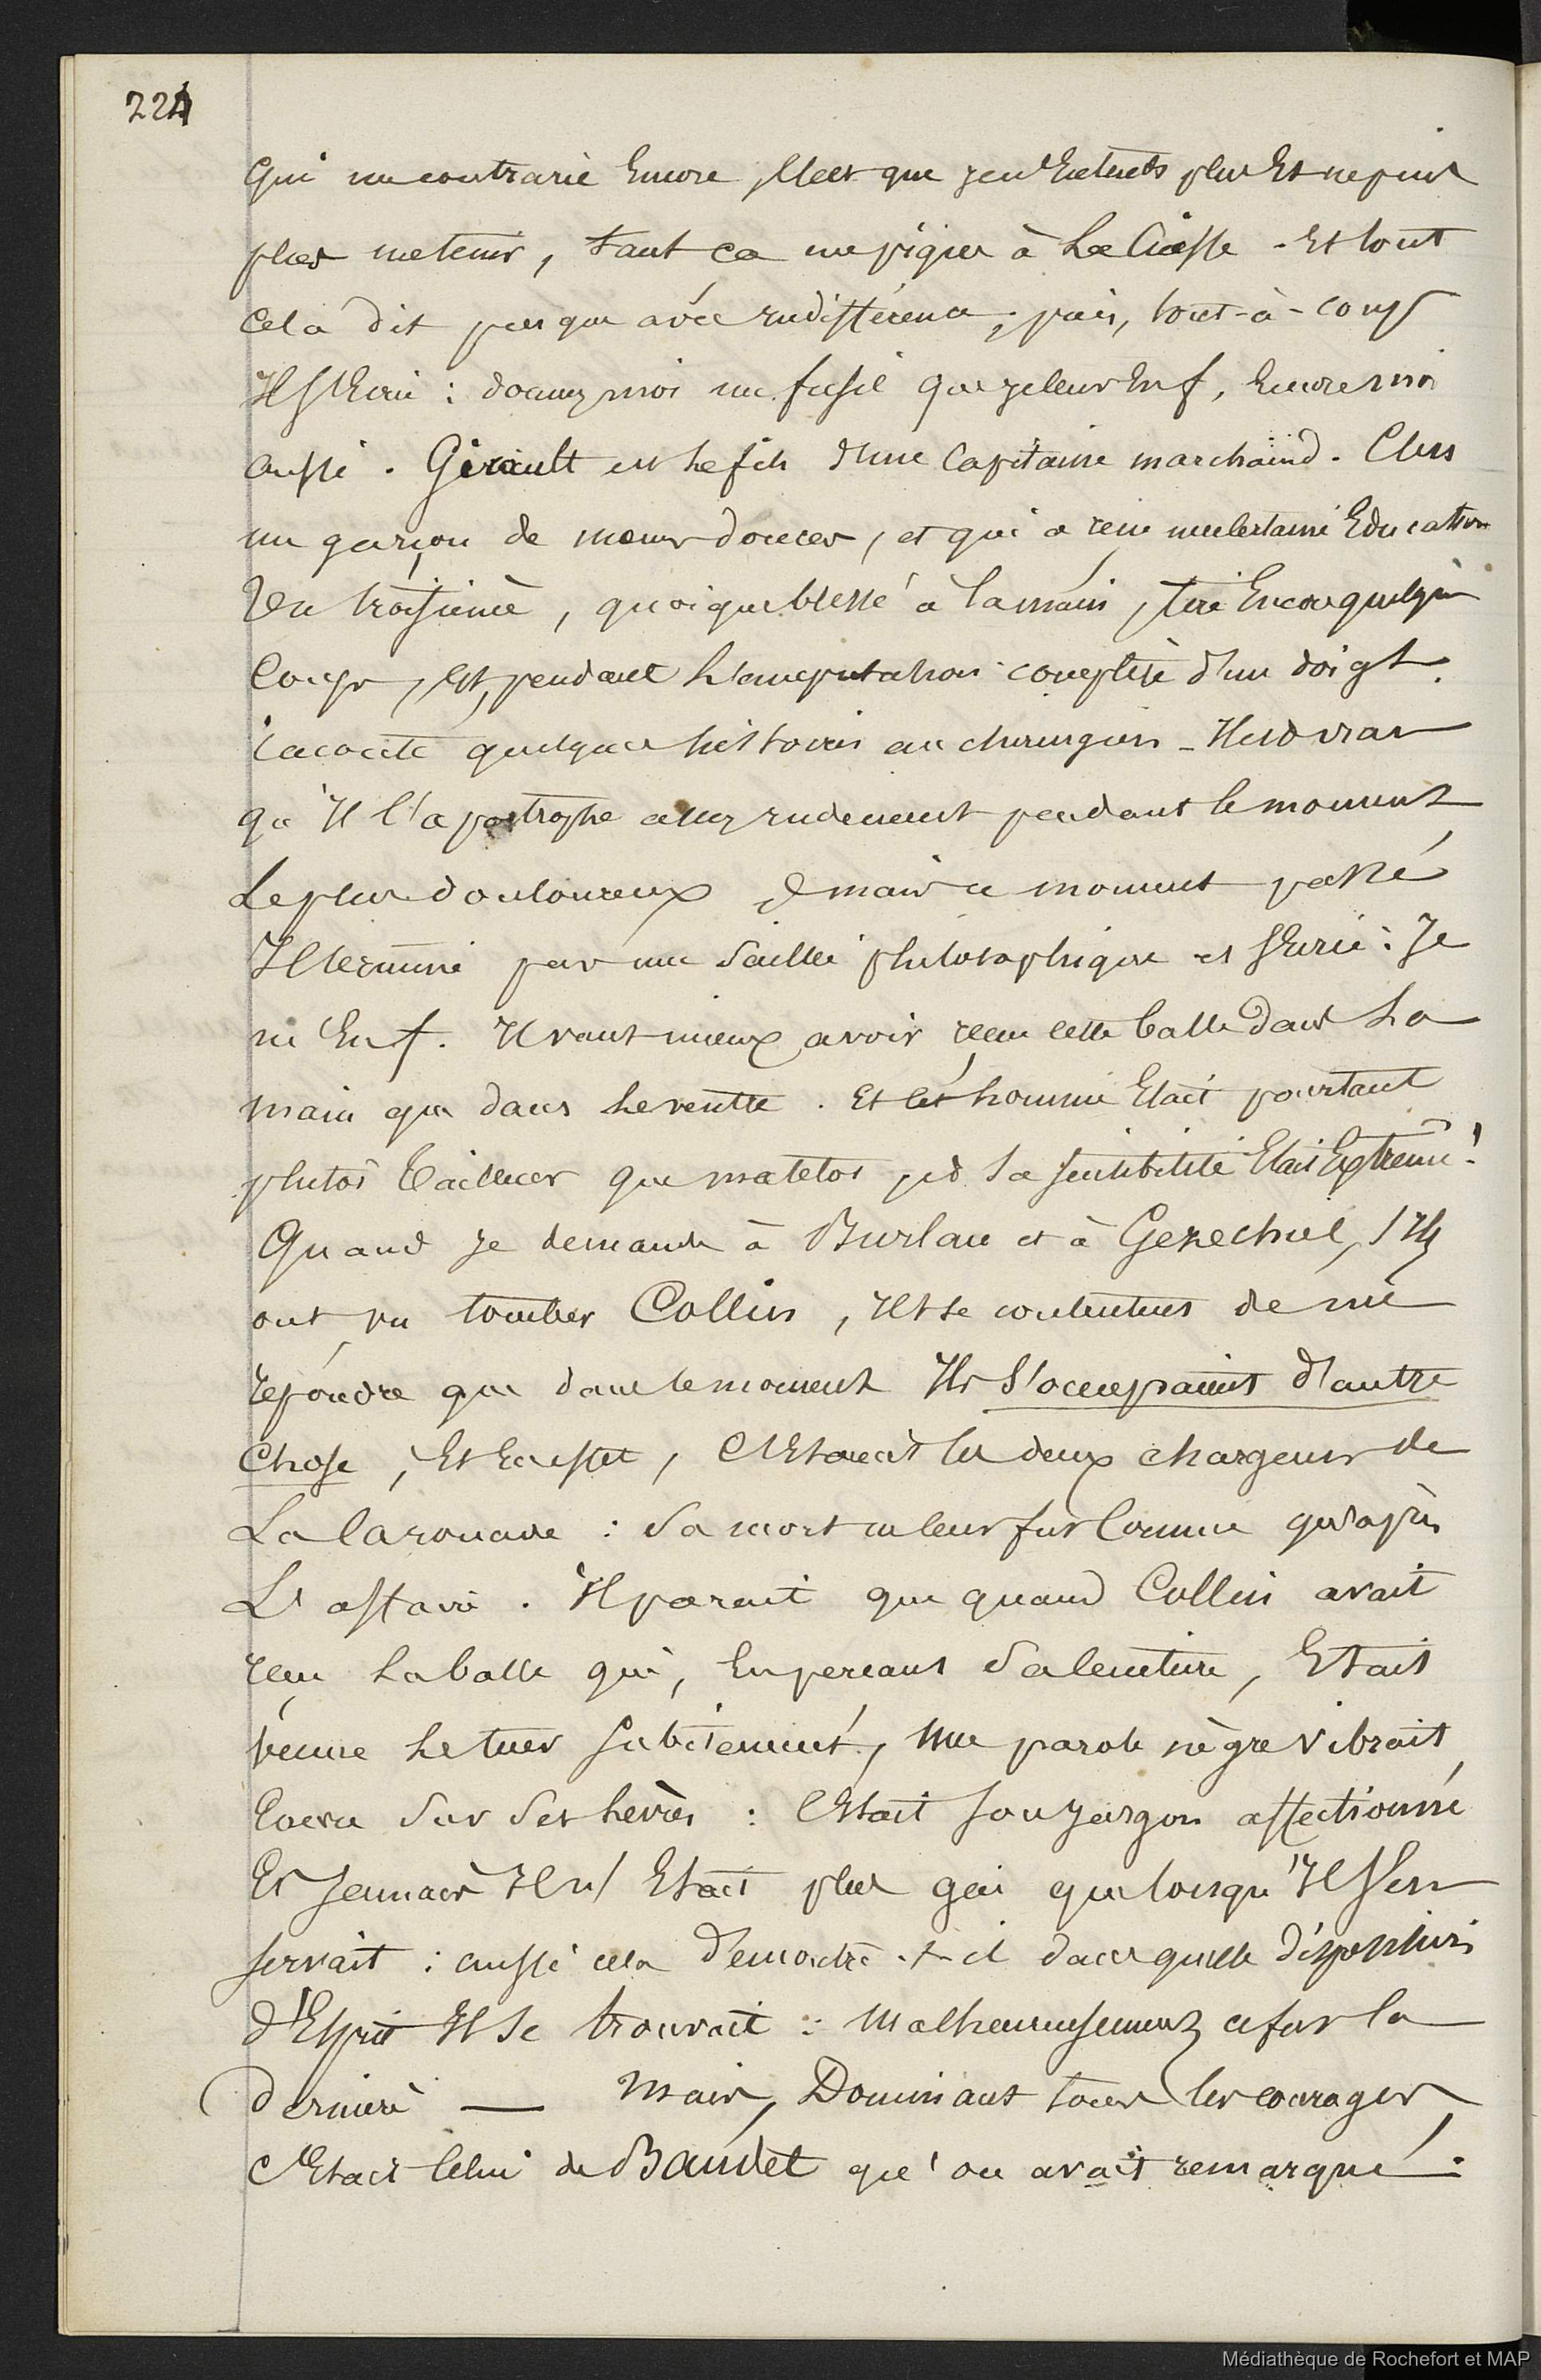 224
qui me contrarie Encore, c'est que je n'Entends plus Et ne puis
plus me tenir, tant ça me pique à La Cuisse. Et tout
cela dit presque avec indifférence; puis, tout-à-coup
Il s'Ecrie : donnez moi un fusil que je leur En f, Encore moi
aussi. Girault est le fils d'un Capitaine marchand. C'est
un garçon de moeurs douces, et qui a reçu une certaine Education
Un troisième, quoique blessé à la main, tire Encore quelques
Coups, Et, pendant L'amputation complète d'un doigt,
raconte quelques histoires au chirurgien - Il est vrai
qu'Il l'apostrophe assez rudement pendant le moment
Le plus douloureux, mais ce moment passé
Il termine par une saillie philosophique et s'Ecrie : Je
m'En f. Il vaut mieux avoir reçu cette balle dans La
main que dans le ventre. Et cet homme Etait pourtant
plutôt tailleur que matelot, sa sensibilité Etait Extreme !
Quand je demande à Burlau et à Gezechiel, s'Ils
ont vu tomber Collin, Ils se contentent de me
repondre que dans le moment Ils s'occupaient d'autre
chose, Et En effet, C'Etaient les deux chargeurs de
La Caronade : sa mort ne leur fut Connue qu'après
L'affaire. Il parait que quand Collin avait
reçu La balle qui, En perçant sa ceinture, Etait
venue Le tuer subitement, une parole nègre vibrait
Encore sur ses Lèvres : C'Etait son jargon affectionné
Et jamais Il n'Etait plus gai que lorsqu'Il s'en
servait : aussi cela demontre-t-il dans quelle disposition
d'Esprit Il se trouvait : malheureusement ce fut la
dernière — Mais, Dominant tous les courages,
C'Etait Celui de Baudet qu'on avait remarqué :
Médiathèque de Rochefort et MAP